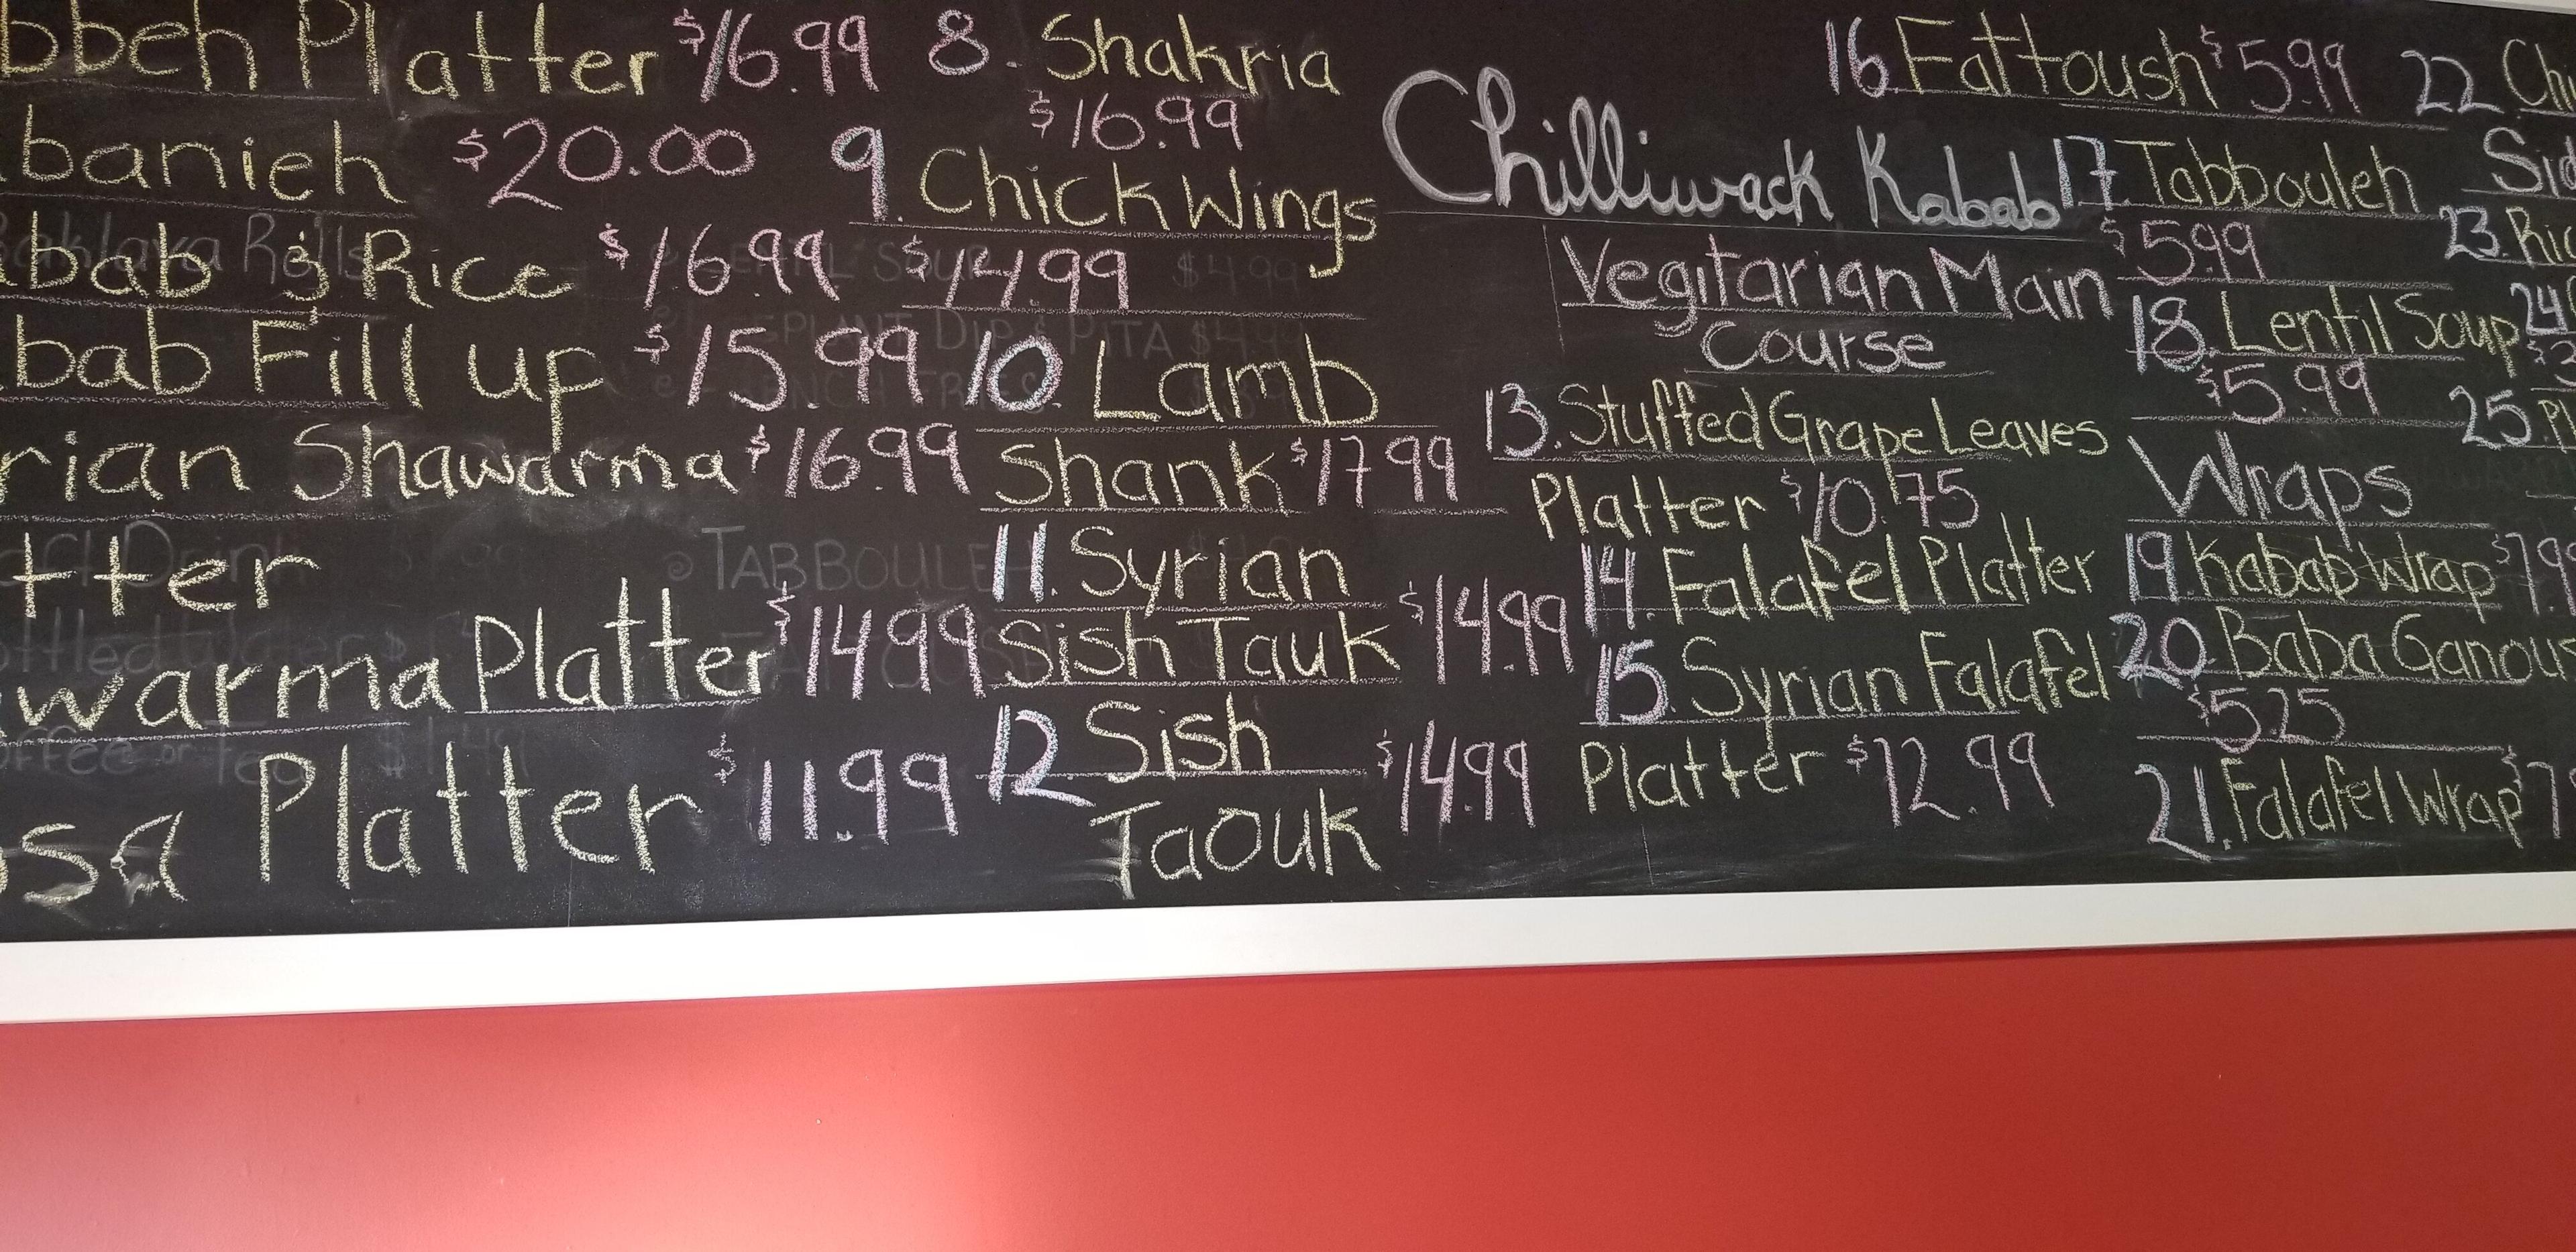 bbeh Platter $16.99
banieh $20.00
bab & Rice $16.99
bab Fill up $15.99
rian Shawarma $16.99
tter
warma Platter $14.99
sa Platter $11.99
8. Shakria
$16.99
9. Chick Wings
$14.99
10. Lamb
Shank $17.99
11. Syrian
Sish Tauk $14.99
12 Sish
Taouk $14.99
Chilliwack Kabab
Vegitarian Main
Course
13. Stuffed Grape Leaves
Platter $10.75
14. Falafel Platter
15. Syrian Falafel
Platter $12.99
16 Fattoush $5.99
17. Tabbouleh
$5.99
18. Lentil Soup
$5.99
Wraps
19. Kabab Wrap $7.99
20 Baba Ganous
$5.25
21. Falafel Wrap $7
22 Chi
Sid
23. Ric
24
$3
25. Pi